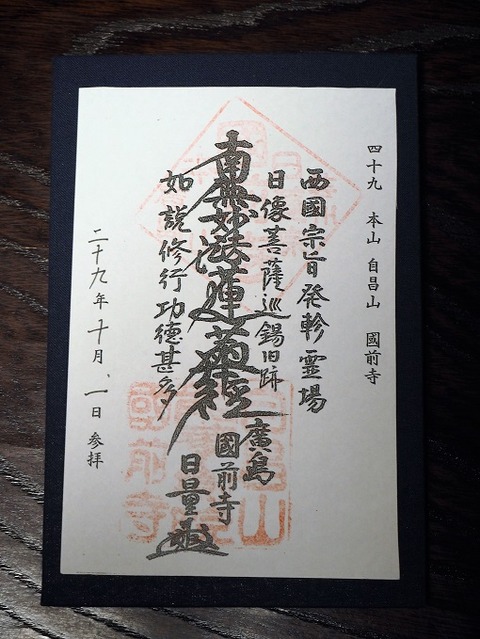 四十九 本山 自昌山 國前寺
西國宗旨発軫霊場
日像菩薩巡錫旧跡
南無妙法蓮華經
如説修行功徳甚多
廣島
國前寺
日量
二十九年十月、一日参拝
自昌山
國前寺